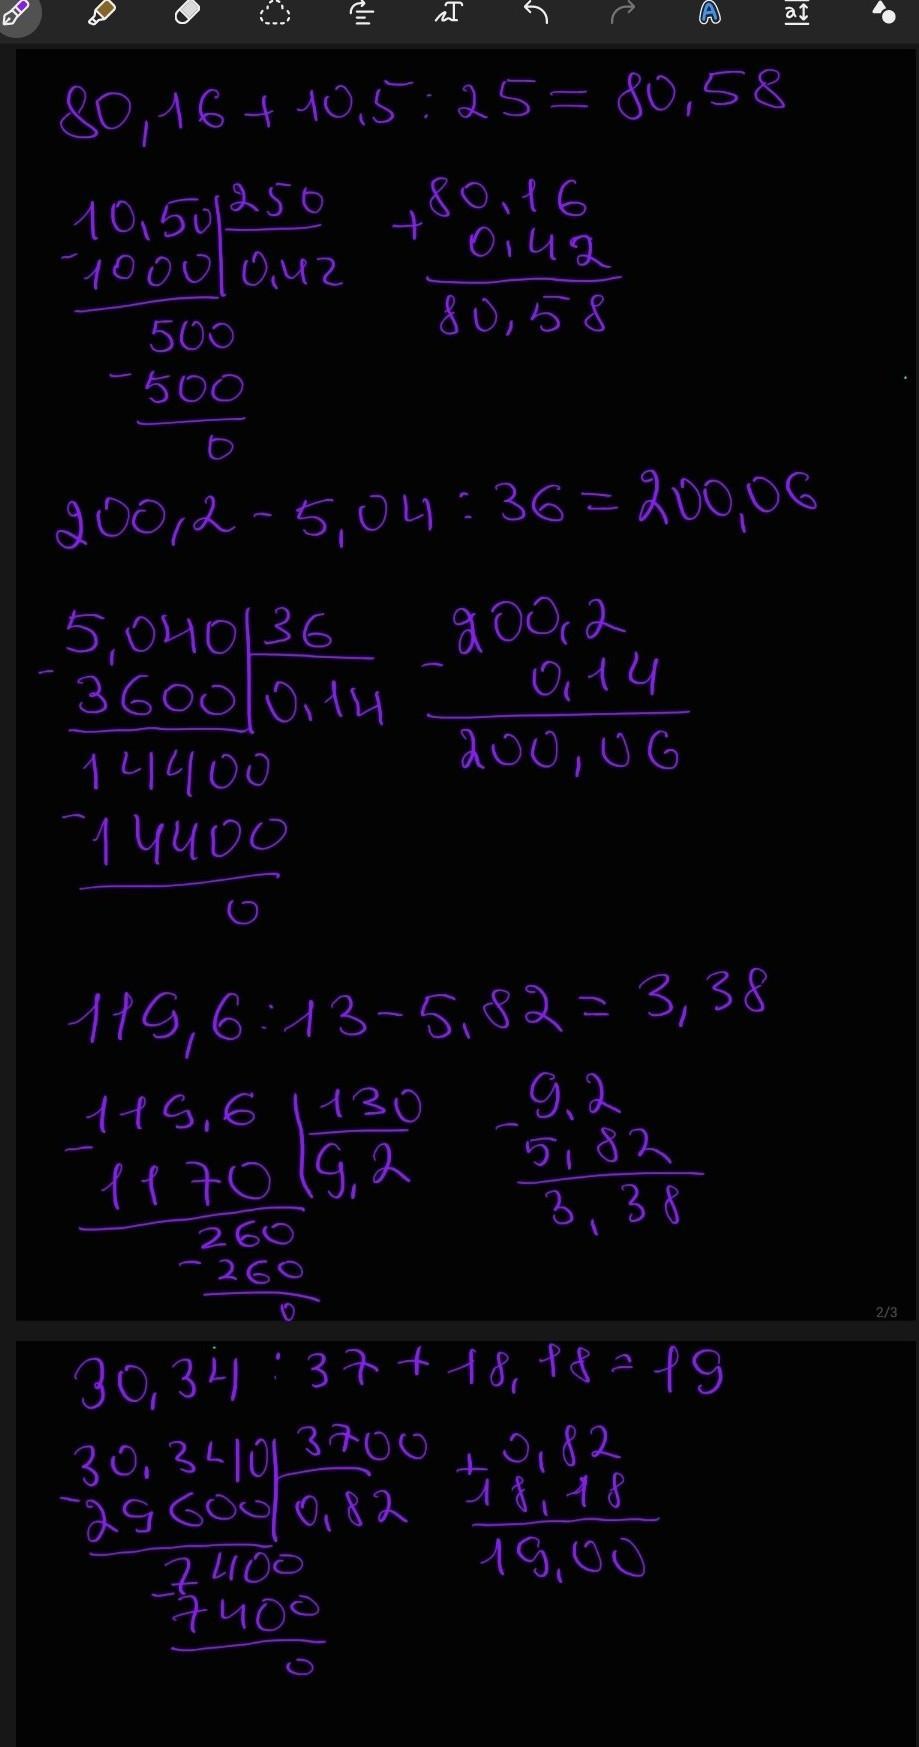 80,16 + 10,5 : 25 = 80,58
10,50 250 + 80,16
- 1000 0,42 0,42
500 80,58
- 500
0
200,2 - 5,04 : 36 = 200,06
5,040 36 200,2
- 3600 0,14 - 0,14
14400 200,06
- 14400
0
119,6 : 13 - 5,82 = 3,38
119,6 130 9,2
- 1170 9,2 - 5,82
260 3,38
- 260
0
2/3
30,34 : 37 + 18,18 = 19
30,340 3700 + 0,82
- 29600 0,82 18,18
7400 19,00
- 7400
0